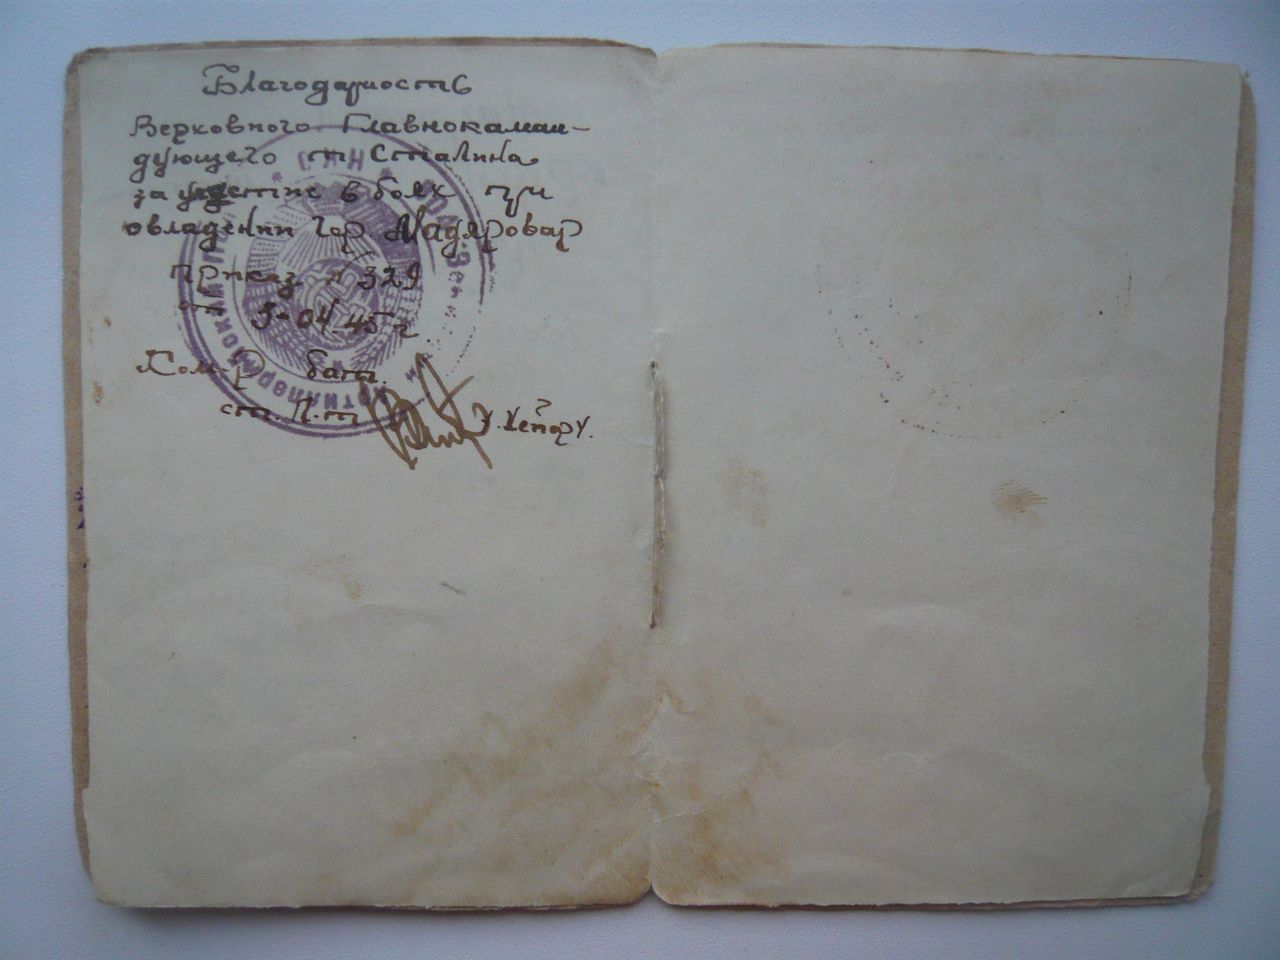 Благодарность
Верховного Главнокаман-
дующего т Сталина
за участие в боях при
овладении гор. Мадяровар
приказ № 329
от 3-04-45 г.
Ком-р бат.
ст. Л-т